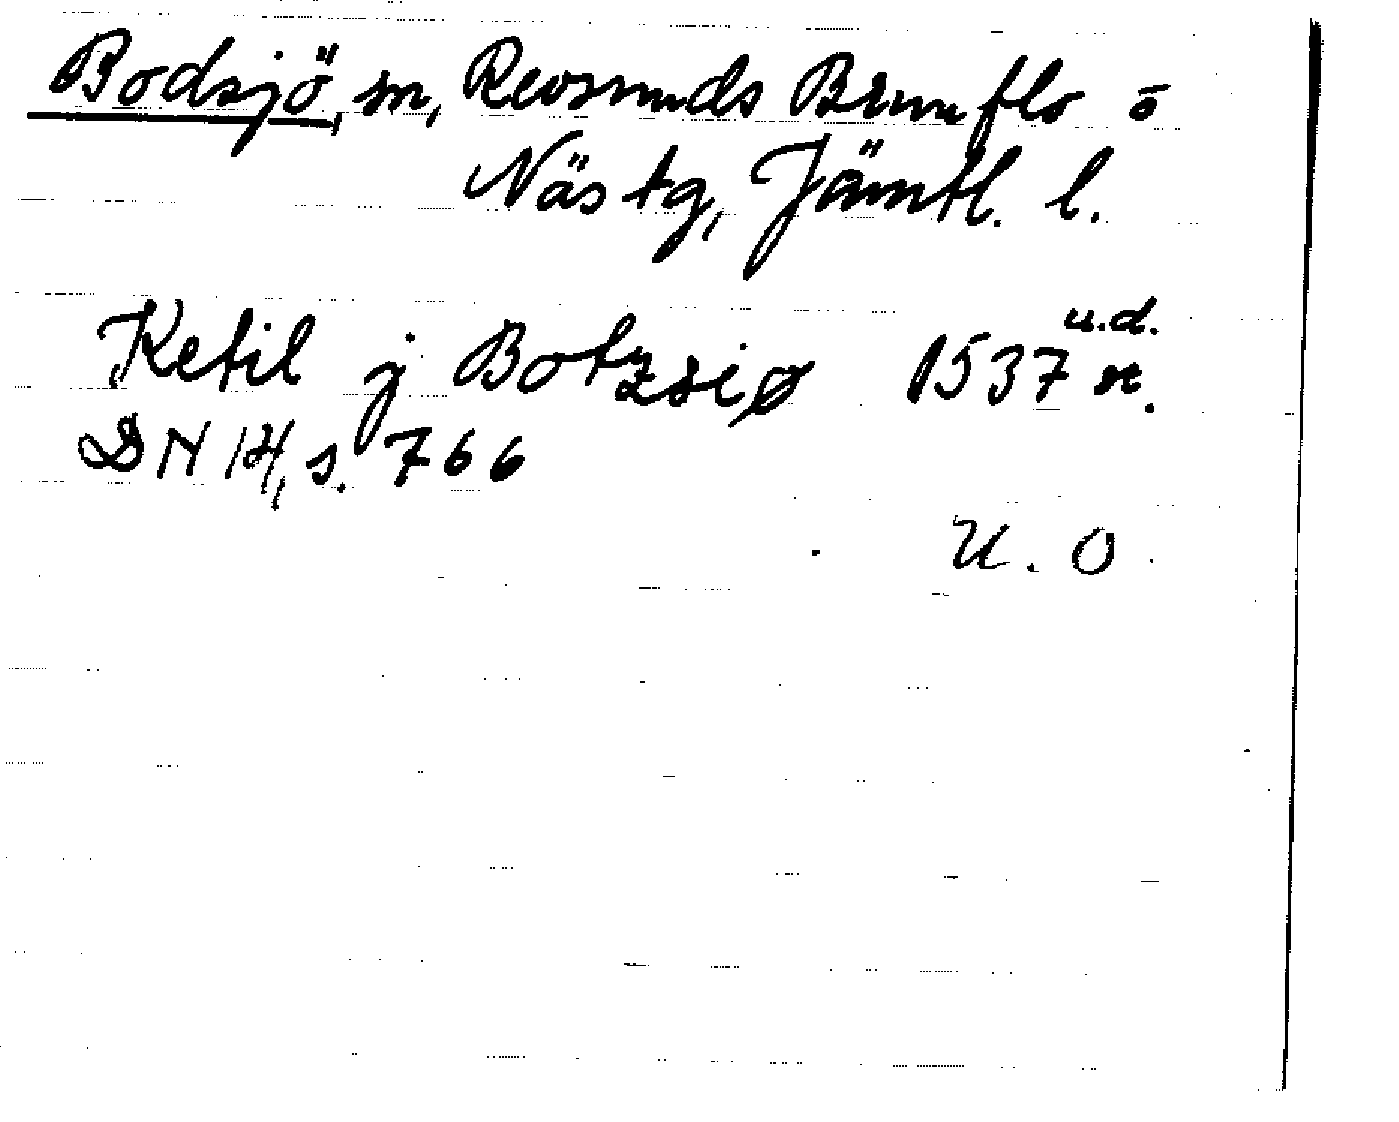 Bodsjö sn, Revsunds Brunflo o
Näs tg, Jämtl. l.
Ketil j Botzsiø 1537 u.d. or.
DN 14, s. 766
U. O.